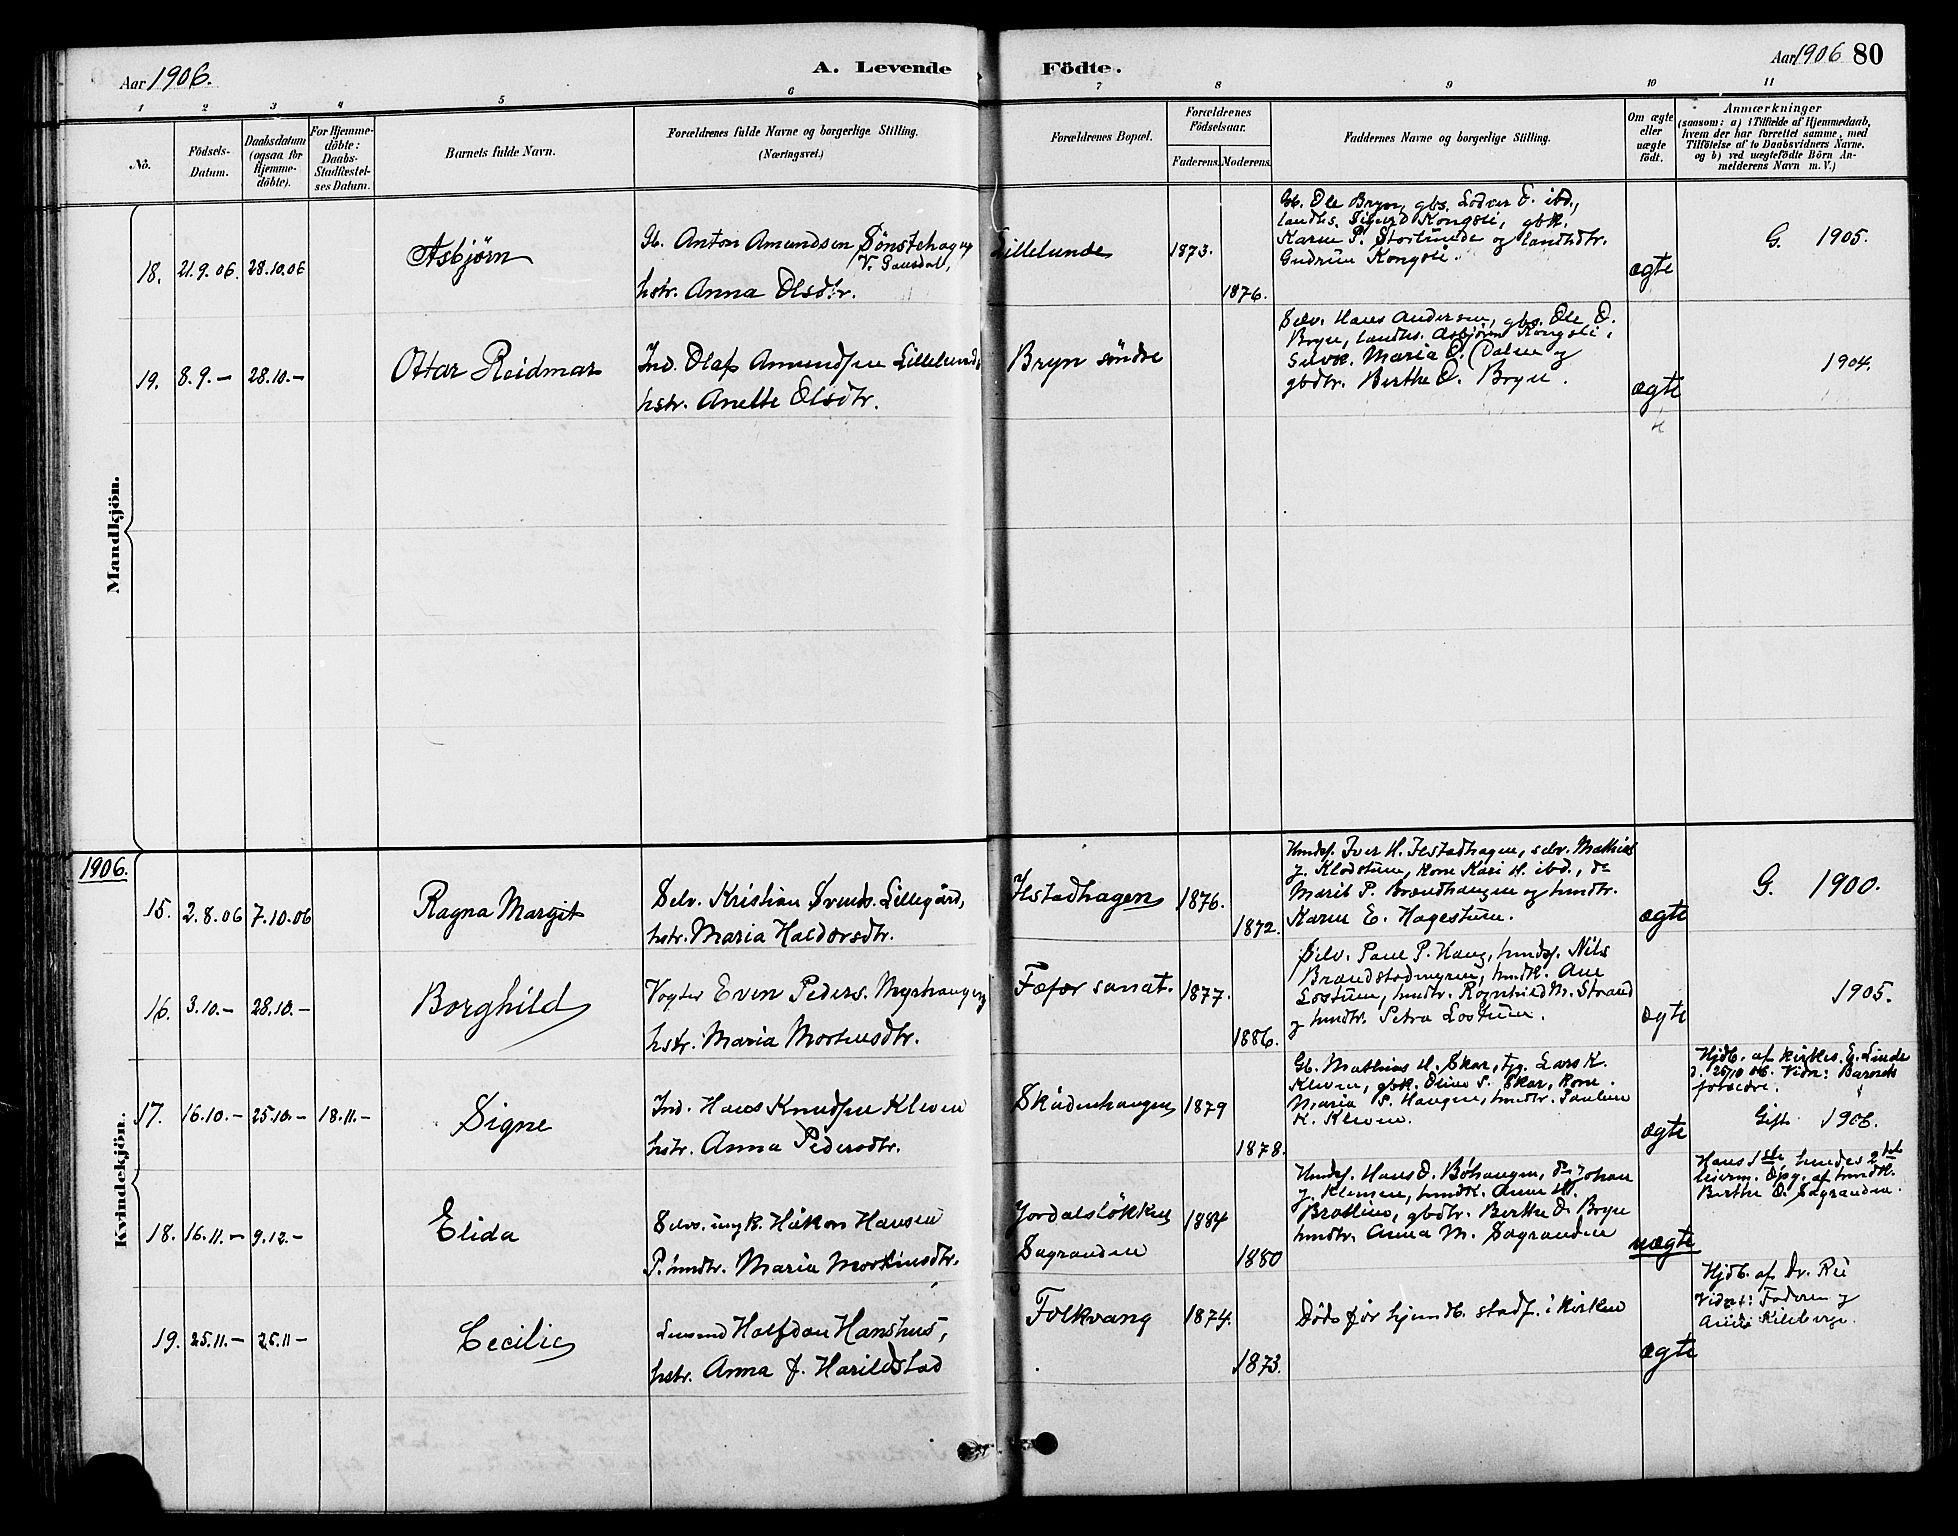 Aar 1906.
A. Levende Födte.
Aar 1906 80
1 2 3 4 5 6 7 8 9 10 11
No.
Födsels-
Datum.
Daabsdatum
(ogsaa for
Hjemme-
döbte).
For Hjemme-
döbte:
Daabs-
Stadfæstel-
ses Datum.
Barnets fulde Navn.
Forældrenes fulde Navne og borgerlige Stilling.
(Næringsvei.)
Forældrenes Bopæl.
Forældrenes
Födselsaar.
Faderens. Moderens.
Faddernes Navne og borgerlige Stilling.
Om ægte
eller
uægte
födt.
Anmærkninger
(saasom: a) i Tilfælde af Hjemmedaab,
hvem der har forrettet samme, med
Tilföielse af to Daabsvidners Navne,
og b) ved uægtefödte Börn An-
melderens Navn m. V.)
Mandkjön.
18. 21.9.06. 28.10.06
Asbjørn
Gb. Anton Amundsen Sønstehagen
V. Gausdal,
hstr. Anna Olsdtr.
Lillelunde
1873.
1876.
Gb. Ole Bryn, gbs. Lodver O. ibd.,
landhs. Sigurd Kongsli, gbk.
Karen P. Storlunde og landhdtr.
Gudrun Kongsli.
ægte
G. 1905.
19. 8.9.— 28.10.—
Ottar Reidmar
Ind. Olaf Amundsen Lillelund,
hstr. Anette Olsdtr.
Bryn söndre
Selv. Hans Andersen, gbs. Ole O.
Bryn, landhs. Asbjørn Kongsli,
Selvk. Maria O. Dalen og
gbdtr. Berthe O. Bryn.
ægte
1904.
1906.
Kvindekjön.
15. 2.8.06 7.10.06
Ragna Margit
Selv. Kristian Svends. Lillegård,
hstr. Maria Haldorsdtr.
Ilstadhagen
1876.
1872.
Hmdsf. Iver H. Ilstadhagen, selv. Mathias
J. Klodstuen, kone Kari H. ibd., do
Marit P. Brændhaugen og hmdtr.
Karen E. Hagestuen.
ægte
G. 1900.
16. 3.10.— 28.10.—
Borghild
Vogter Even Peders. Myrhaugen
hstr. Maria Mortensdtr.
Fefor sanat.
1877.
1886.
Selv. Paul P. Haug, hmdsf. Nils
Brandstadmyren, hmdk. Ane
Lostuen, hmdtr. Ragnhild M. Strand
og hmdtr. Petra Lostuen.
ægte
1905.
17. 16.10.— 25.10.— 18.11.—
Signe
Ind. Hans Knudsen Kleven
hstr. Anna Pedersdtr.
Skådenhaugen
1879
1878.
Gb. Mathias H. Skar, tjg. Lars K.
Kleven, gbk. Oline S. Skar, kone
Maria P. Haugen, hmdtr. Pauline
K. Kleven.
ægte
Hjdb. af kirkes. E. Linde
d. 25/10 06. Vidn: Barnets
forældre.
Gift 1906.
18. 16.11.— 9.12.—
Elida
Selvs. ungk. Håkon Hansen
P. hmdtr. Maria Mortinusdtr.
Jordalsløkken
Sagranden
1884
1880
Hmdsf. Hans O. Bøhaugen, do Johan
J. Klemen, hmdk. Anne M.
Bratlien, gbdtr. Berthe O. Bryn
hmdtr. Anna M. Sagranden
uægte
Hans 1ste hendes 2det
leierm. Opg. af hmdk.
Berthe O. Sagranden.
19. 25.11.— 25.11—
Cecilie
Lensmd Halfdan Hanshus,
hstr. Anna J. Harildstad
Folkvang
1874.
1873.
Døde før hjemdb. stadf. i kirken
ægte
Hjdb. af Dr. Rii
Vidnet: Faderen og
Kileberge.